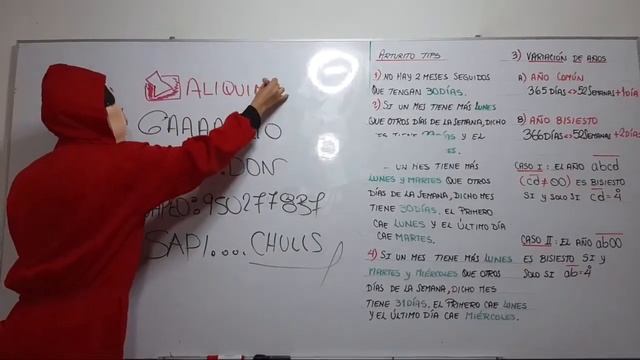 ALIQUI
GAAAA
DON
950277837
SAPI... CHULLS
ARTURITO TIPS
1) NO HAY 2 MESES SEGUIDOS
QUE TENGAN 30 DÍAS.
2) SI UN MES TIENE MÁS LUNES
QUE OTROS DÍAS DE LA SEMANA, DICHO
Y EL
UN MES TIENE MÁS
LUNES Y MARTES QUE OTROS
DÍAS DE LA SEMANA, DICHO MES
TIENE 30 DÍAS. EL PRIMERO
CAE LUNES Y EL ÚLTIMO DÍA
CAE MARTES.
4) SI UN MES TIENE MÁS LUNES
MARTES Y MIÉRCOLES QUE OTROS
DÍAS DE LA SEMANA, DICHO MES
TIENE 31 DÍAS. EL PRIMERO CAE LUNES
Y EL ÚLTIMO DÍA CAE MIÉRCOLES.
3) VARIACIÓN DE AÑOS
A) AÑO COMÚN
365 DÍAS <> 52 SEMANAS + 1 DÍA
B) AÑO BISIESTO
366 DÍAS <> 52 SEMANAS + 2 DÍAS
CASO I: EL AÑO abcd
(cd ≠ 00) ES BISIESTO
SI Y SOLO SI cd = 4°
CASO II: EL AÑO ab00
ES BISIESTO SI Y
SOLO SI ab = 4°